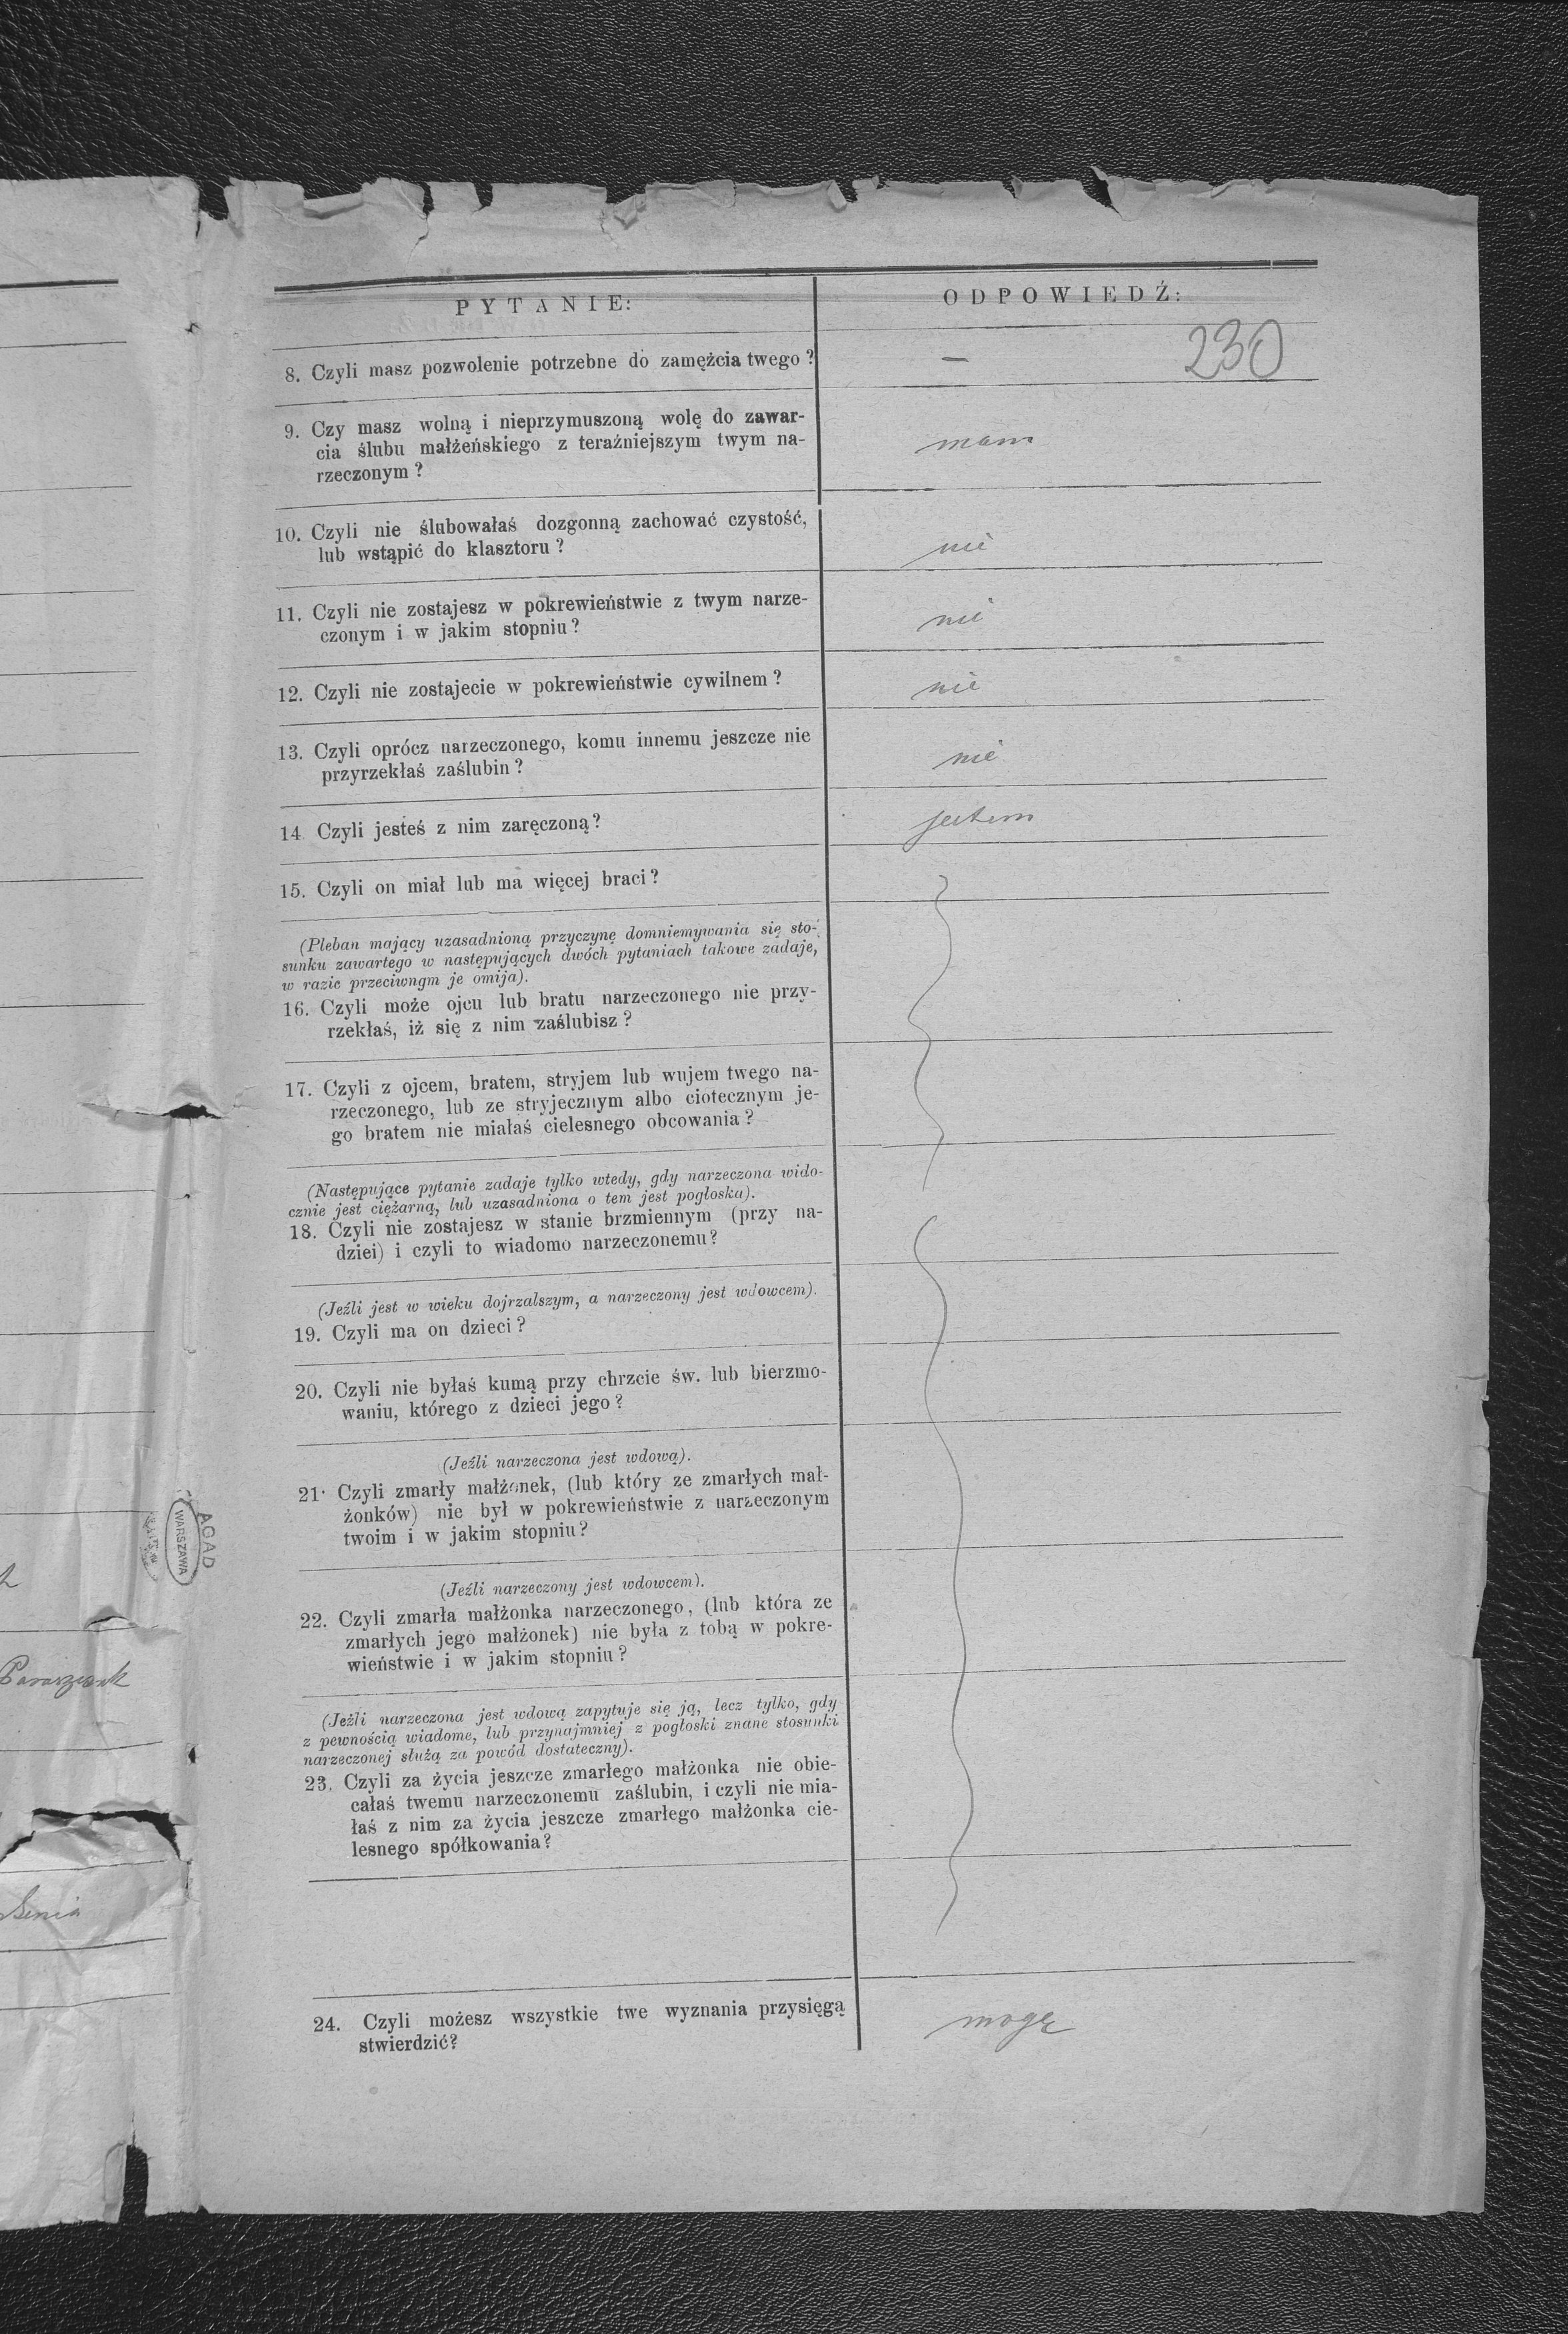 PYTANIE:
ODPOWIEDŹ:
230
8. Czyli masz pozwolenie potrzebne do zamężcia twego ?
—
9. Czy masz wolną i nieprzymuszoną wolę do zawar-
cia ślubu małżeńskiego z teraźniejszym twym na-
rzeczonym ?
mam
10. Czyli nie ślubowałaś dozgonną zachować czystość,
lub wstąpić do klasztoru ?
nie
11. Czyli nie zostajesz w pokrewieństwie z twym narze-
czonym i w jakim stopniu ?
nie
12. Czyli nie zostajecie w pokrewieństwie cywilnem ?
nie
13. Czyli oprócz narzeczonego, komu innemu jeszcze nie
przyrzekłaś zaślubin ?
nie
14. Czyli jesteś z nim zaręczoną ?
jestem
15. Czyli on miał lub ma więcej braci ?
(Pleban mający uzasadnioną przyczynę domniemywania się sto-
sunku zawartego w następujących dwóch pytaniach takowe zadaje,
w razie przeciwngm je omija).
16. Czyli może ojcu lub bratu narzeczonego nie przy-
rzekłaś, iż się z nim zaślubisz ?
17. Czyli z ojcem, bratem, stryjem lub wujem twego na-
rzeczonego, lub ze stryjecznym albo ciotecznym je-
go bratem nie miałaś cielesnego obcowania ?
(Następujące pytanie zadaje tylko wtedy, gdy narzeczona wido-
cznie jest ciężarną, lub uzasadniona o tem jest pogłoska).
18. Czyli nie zostajesz w stanie brzmiennym (przy na-
dziei) i czyli to wiadomo narzeczonemu ?
(Jeźli jest w wieku dojrzalszym, a narzeczony jest wdowcem).
19. Czyli ma on dzieci ?
20. Czyli nie byłaś kumą przy chrzcie św. lub bierzmo-
waniu, którego z dzieci jego ?
(Jeźli narzeczona jest wdową).
21· Czyli zmarły małżonek, (lub który ze zmarłych mał-
żonków) nie był w pokrewieństwie z narzeczonym
twoim i w jakim stopniu ?
(Jeźli narzeczony jest wdowcem).
22. Czyli zmarła małżonka narzeczonego, (lub która ze
zmarłych jego małżonek) nie była z tobą w pokre-
wieństwie i w jakim stopniu ?
(Jeźli narzeczona jest wdową zapytuje się ją, lecz tylko, gdy
z pewnością wiadome, lub przynajmniej z pogłoski znane stosunki
narzeczonej służą za powód dostateczny).
23. Czyli za życia jeszcze zmarłego małżonka nie obie-
całaś twemu narzeczonemu zaślubin, i czyli nie mia-
łaś z nim za życia jeszcze zmarłego małżonka cie-
lesnego spółkowania ?
24. Czyli możesz wszystkie twe wyznania przysięgą
stwierdzić?
mogę
AGAD
WARSZAWA